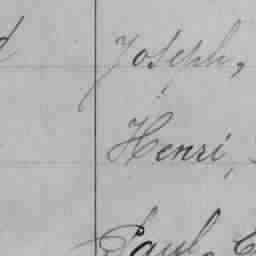 Joseph,
Henri,
Paul